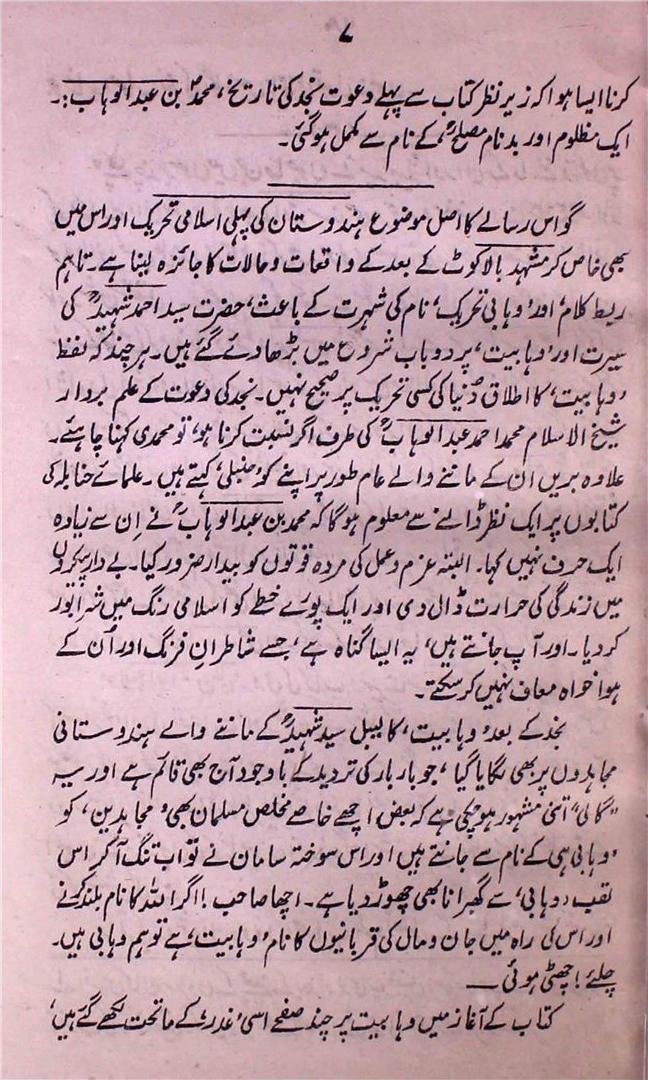 ۷
کرنا ایسا ہوا کہ زیر نظر کتاب سے پہلے دعوت نجد کی تاریخ، محمدؒ بن عبدالوہاب :۔
ایک مظلوم اور بدنام مصلحؒ، کے نام سے مکمل ہو گئی۔
گو اس رسالے کا اصل موضوع ہندوستان کی پہلی اسلامی تحریک اور اس میں
بھی خاص کر مشہد بالاکوٹ کے بعد کے واقعات و حالات کا جائزہ لینا ہے۔ تاہم
ربط کلام، اور 'وہابی تحریک' نام کی شہرت کے باعث، حضرت سید احمد شہیدؒ کی
سیرت اور 'وہابیت' پر دو باب شروع میں بڑھا دئے گئے ہیں۔ ہر چند کہ لفظ
'وہابیت' کا اطلاق دُنیا کی کسی تحریک پر صحیح نہیں۔ نجد کی دعوت کے علم بردار
شیخ الاسلام محمد احمد عبدالوہابؒ کی طرف اگر نسبت کرنا ہو، تو محمدی کہنا چاہئے۔
علاوہ بریں ان کے ماننے والے عام طور پر اپنے کو 'حنبلی' کہتے ہیں۔ علمائے حنابلہ کی
کتابوں پر ایک نظر ڈالنے سے معلوم ہوگا کہ محمد بن عبدالوہابؒ نے اِن سے زیادہ
ایک حرف نہیں کہا۔ البتہ عزم و عمل کی مردہ قوتوں کو بیدار ضرور کیا۔ بے دار پیکروں
میں زندگی کی حرارت ڈال دی اور ایک پورے خطے کو اسلامی رنگ میں شرابور
کر دیا۔ اور آپ جانتے ہیں، یہ ایسا گناہ ہے، جسے شاطرانِ فرنگ اور اُن کے
ہوا خواہ معاف نہیں کر سکتے۔
نجد کے بعد 'وہابیت' کا لیبل سید شہیدؒ کے ماننے والے ہندوستانی
مجاہدوں پر بھی لگایا گیا، جو بار بار کی تردید کے باوجود آج بھی قائم ہے اور یہ
"گالی" اتنی مشہور ہو چکی ہے کہ بعض اچھے خاصے مخلص مسلمان بھی 'مجاہدین' کو
'وہابی' ہی کے نام سے جانتے ہیں اور اس سوختہ سامان نے تو اب تنگ آ کر اس
لقب 'وہابی' سے گھبرانا بھی چھوڑ دیا ہے۔ اچھا صاحب! اگر اللہ کا نام بلند کرنے
اور اس کی راہ میں جان و مال کی قربانیوں کا نام 'وہابیت' ہے تو ہم وہابی ہیں۔
چلئے! چھٹی ہوئی ـــ
کتاب کے آغاز میں وہابیت پر چند صفحے اسی 'عذر' کے ماتحت لکھے گئے ہیں،